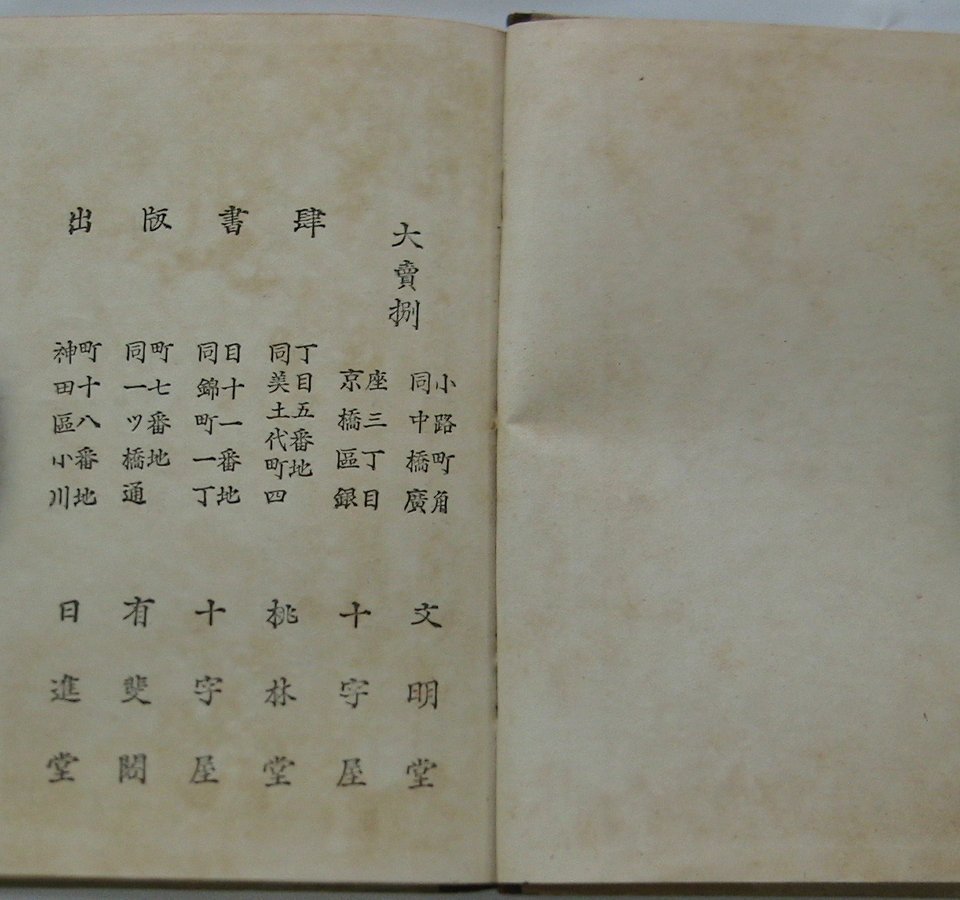 出版書肆
神田區小川
町十八番地
日進堂
同一ツ橋通
町七番地
有斐閣
同錦町一丁
目十一番地
十字屋
同美土代町四
丁目五番地
桃林堂
大賣捌
京橋區銀
座三丁目
十字屋
同中橋廣
小路町角
文明堂